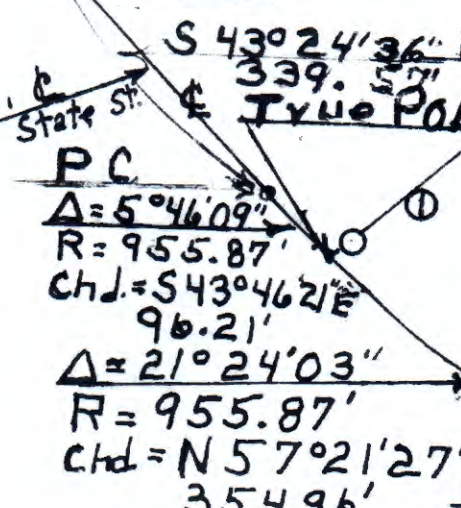 S 43° 24' 36"
339. 57'
℄
State St.
℄
True
P C
Δ = 5° 46' 09"
①
R = 955.87'
Chd. = S 43° 46' 21" E
96.21'
Δ = 21° 24' 03"
R = 955.87'
Chd = N 57° 21' 27"
354.96'